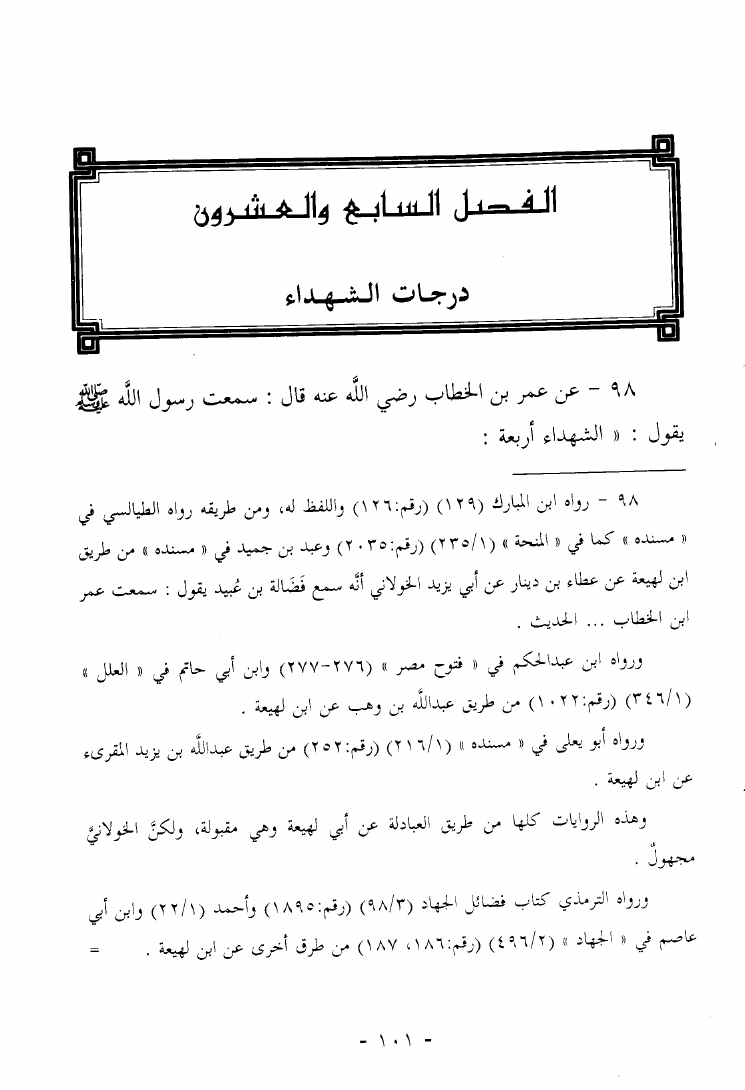 الفصل السابع والعشرون
درجات الشهداء
٩٨ - عن عمر بن الخطاب رضي اللَّه عنه قال : سمعت رسول اللَّه ﷺ
يقول : « الشهداء أربعة :
٩٨ - رواه ابن المبارك (١٢٩) (رقم:١٢٦) واللفظ له، ومن طريقه رواه الطيالسي في
« مسنده » كما في « المنحة » (٢٣٥/١) (رقم:٢٠٣٥) وعبد بن حميد في « مسنده » من طريق
ابن لهيعة عن عطاء بن دينار عن أبي يزيد الخولاني أنَّه سمع فَضَالة بن عُبيد يقول : سمعت عمر
ابن الخطاب ... الحديث .
ورواه ابن عبدالحكم في « فتوح مصر » (٢٧٦-٢٧٧) وابن أبي حاتم في « العلل »
(٣٤٦/١) (رقم:١٠٢٢) من طريق عبداللَّه بن وهب عن ابن لهيعة .
ورواه أبو يعلى في « مسنده » (٢١٦/١) (رقم:٢٥٢) من طريق عبداللَّه بن يزيد المقرىء
عن ابن لهيعة .
وهذه الروايات كلها من طريق العبادلة عن أبي لهيعة وهي مقبولة، ولكنَّ الخولانيَّ
مجهولٌ .
ورواه الترمذي كتاب فضائل الجهاد (٩٨/٣) (رقم:١٨٩٥) وأحمد (٢٢/١) وابن أبي
عاصم في « الجهاد » (٤٩٦/٢) (رقم:١٨٦، ١٨٧) من طرق أخرى عن ابن لهيعة . =
- ١٠١ -